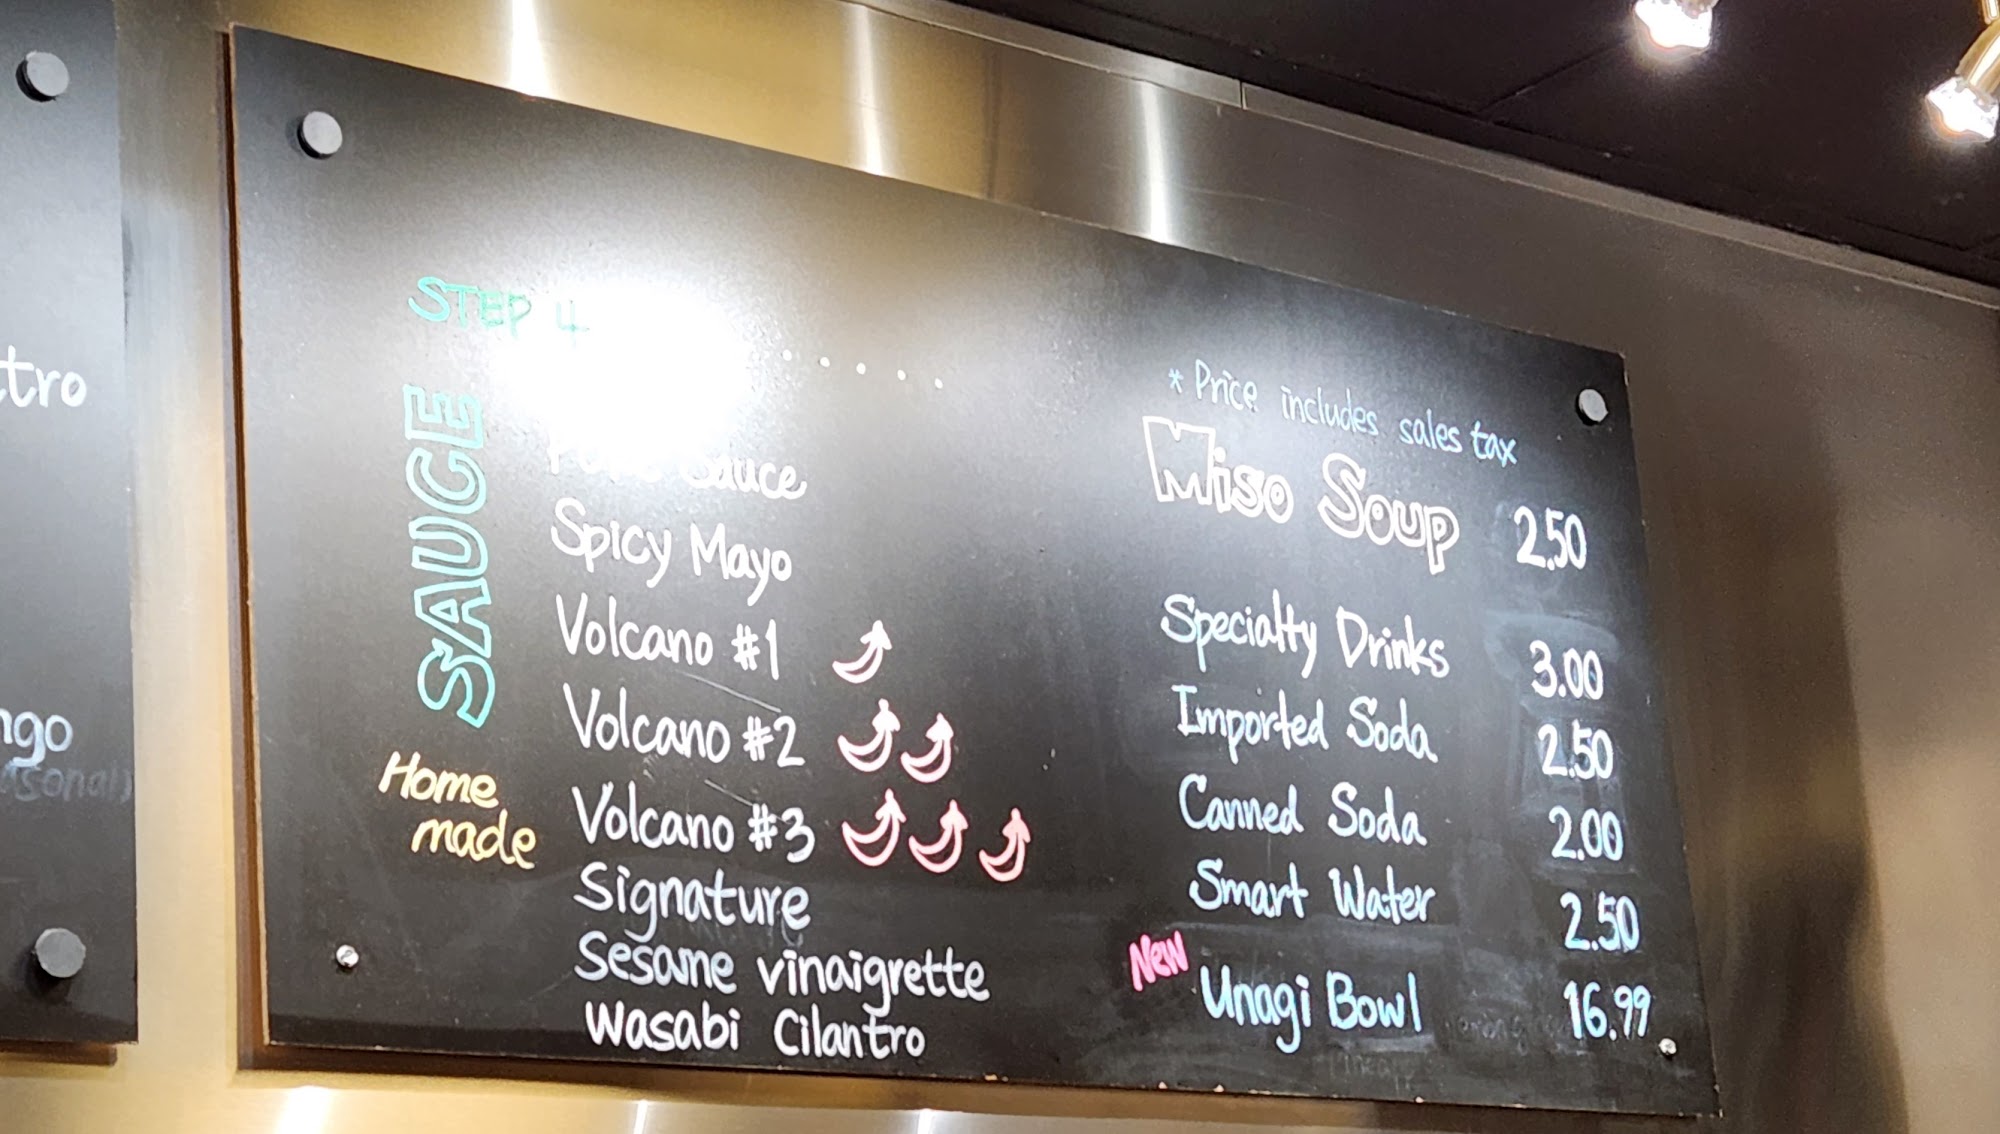 tro
ngo
sonal)
STEP 4
SAUCE
Home
made
Sauce
Spicy Mayo
Volcano #1
Volcano #2
Volcano #3
Signature
Sesame vinaigrette
Wasabi Cilantro
* Price includes sales tax
Miso Soup 2.50
Specialty Drinks 3.00
Imported Soda 2.50
Canned Soda 2.00
Smart Water 2.50
New
Unagi Bowl 16.99